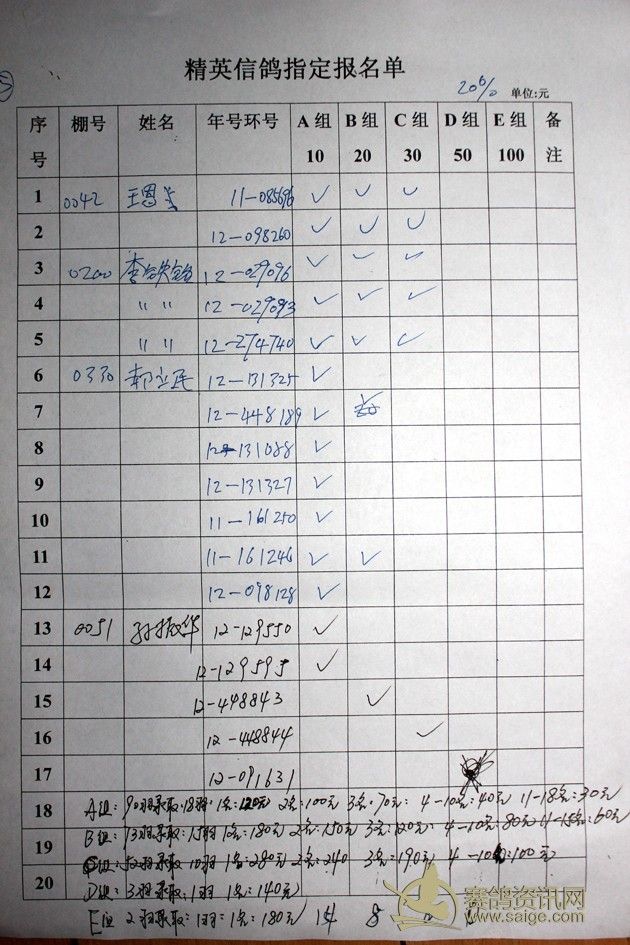 精英信鸽指定报名单
20% 单位:元
序号 棚号 姓名 年号环号 A组 10 B组 20 C组 30 D组 50 E组 100 备注
1 0042 11-085696 ✓ ✓ ✓
2 12-098260 ✓ ✓ ✓
3 0200 12-029096 ✓ ✓ ✓
4 〃 〃 12-029093 ✓ ✓ ✓
5 〃 〃 12-274740 ✓ ✓ ✓
6 0330 郭立民 12-131325 ✓
7 12-448189 ✓
8 12-131088 ✓
9 12-131327 ✓
10 11-161250 ✓
11 11-161246 ✓ ✓
12 12-098128 ✓
13 0051 孙振华 12-129550 ✓
14 12-129595 ✓
15 12-448843 ✓
16 12-448844 ✓
17 12-091631
18 A组: 90羽录取:18羽: 1名: 120元 2名:100元 3名:70元: 4-10名:40元 11-18名:30元
19 B组: 录取:15羽 1名:180元 2名:150元 3名:120元: 4-10名:80元 11-15名:60元
20 C组:52羽录取 10羽 1名:280元 2名:240 3名:190元 4-10名:100元
D组: 3羽录取:1羽 1名:140元
E组 2羽录取:1羽:1名:180元 8
赛鸽资讯网
www.saige.com